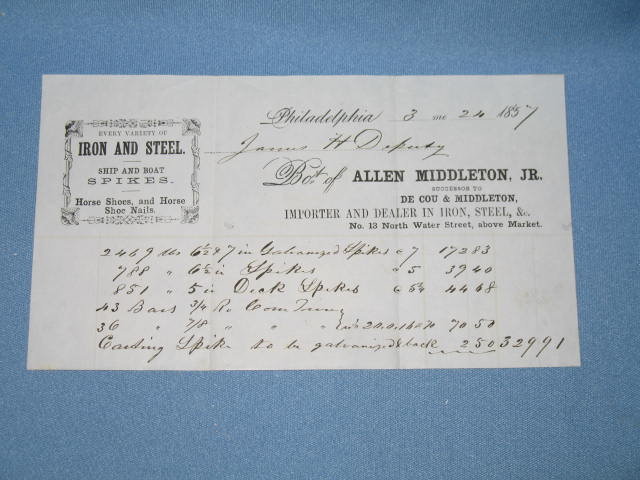 Philadelphia 3 mo 24 1857
EVERY VARIETY OF
IRON AND STEEL.
SHIP AND BOAT
SPIKES.
Horse Shoes, and Horse
Shoe Nails.
James H Deputy
Bot. of ALLEN MIDDLETON, JR.
SUCCESSOR TO
DE COU & MIDDLETON,
IMPORTER AND DEALER IN IRON, STEEL, &c.
No. 13 North Water Street, above Market.
2469 lbs 6½ & 7 in Galvanized Spikes @ 7 172 83
788 " 6½ in Spikes @ 5 39 40
851 " 5 in Deck Spikes 44 68
43 Bars 3/4 Ro
36 " 7/8 " " " 70 50
Carting Spike to be galvanized & back 2 50 329 91